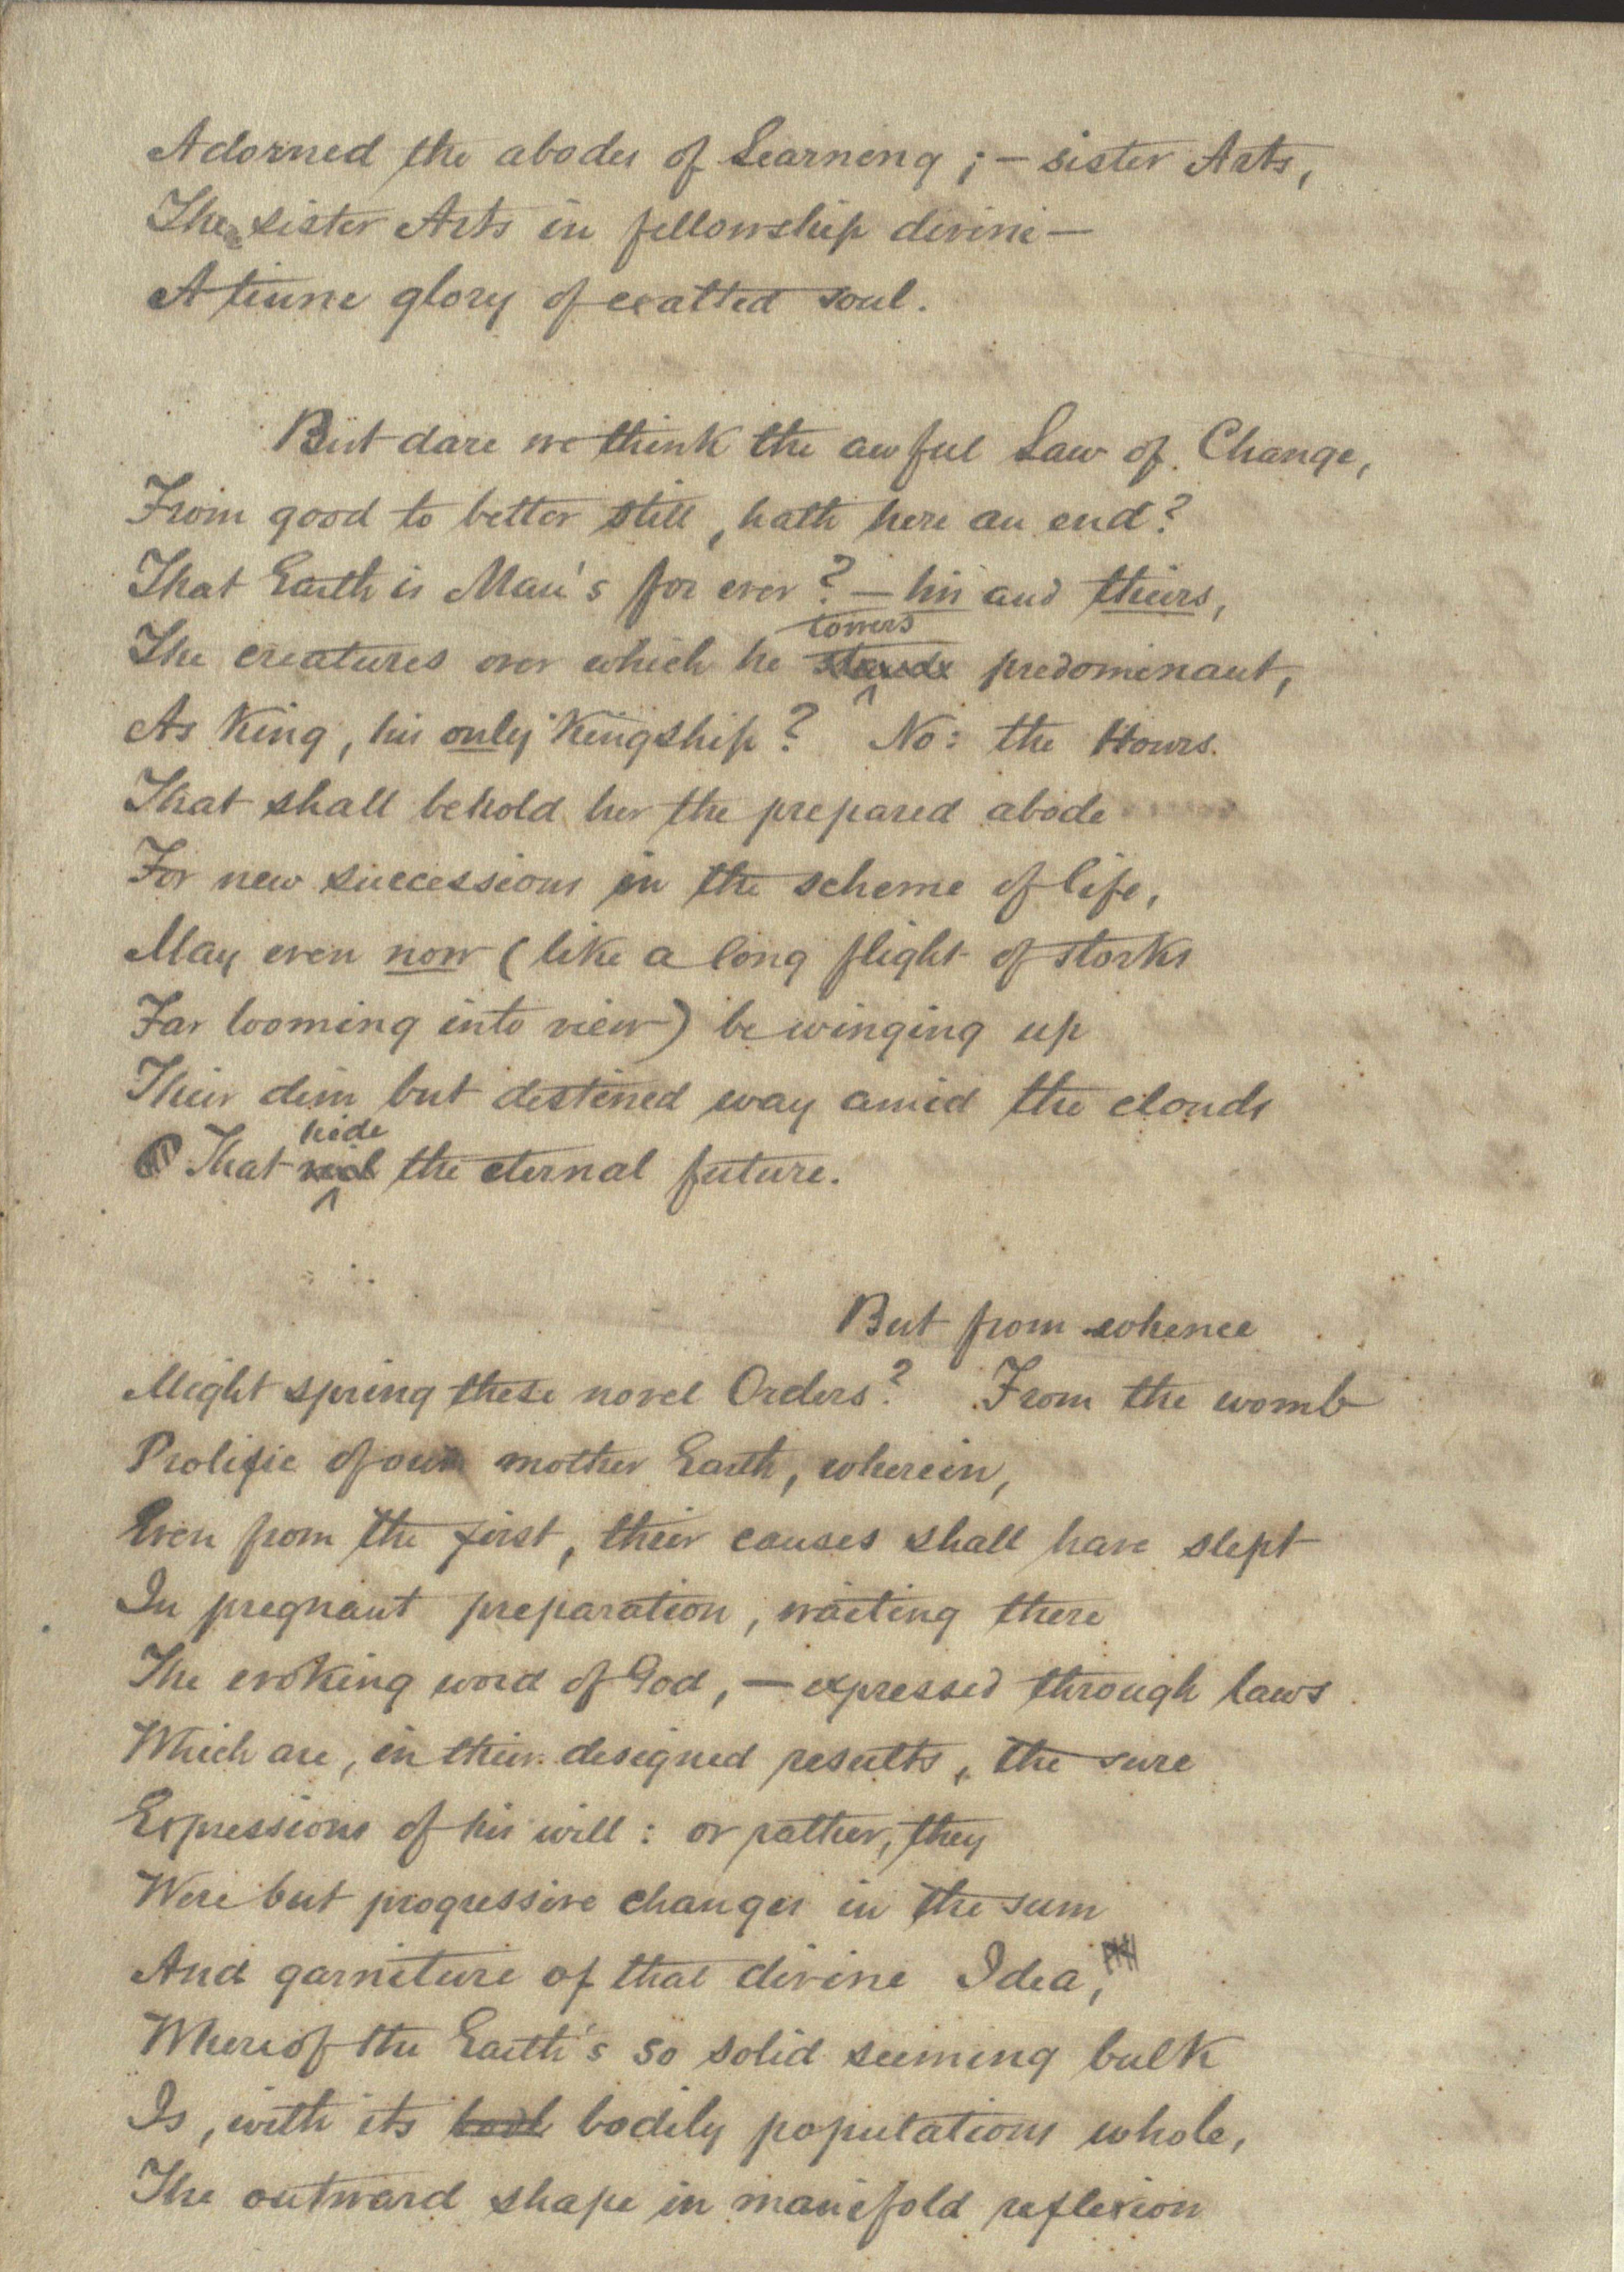 Adorned the abodes of Learning; — sister Arts,
The sister Arts in fellowship divine —
A triune glory of exalted soul.
But dare we think the awful Law of Change,
From good to better still, hath here an end?
That Earth is Man's for ever? — his and theirs,
towers
The creatures over which he stands predominant,
As King, his only Kingship? No: the Hours
That shall behold her the prepared abode
For new successions in the scheme of life,
May even now (like a long flight of storks
Far looming into view) be winging up
Their dim but destined way amid the clouds
hide
That the eternal future.
But from whence
Might spring these novel Orders? From the womb
Prolific of our mother Earth, wherein,
Even from the first, their causes shall have slept
In pregnant preparation, waiting there
The evoking word of God, — expressed through laws
Which are, in their designed results, the sure
Expressions of his will: or rather, they
Were but progressive changes in the sum
And garniture of that divine Idea,
Whereof the Earth's so solid seeming bulk
Is, with its bodily populations whole,
The outward shape in manifold reflexion